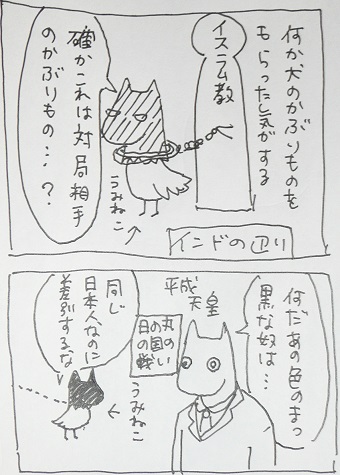 何か犬のかぶりものを
もらった気がする
イスラム教
確かこれは対局相手
のかぶりもの…?
うみねこ
インドの辺り
何だあの色のまっ
黒な奴は…
平成
天皇
日の丸
の国の
戦い
同じ
日本人なのに
差別するな
うみねこ